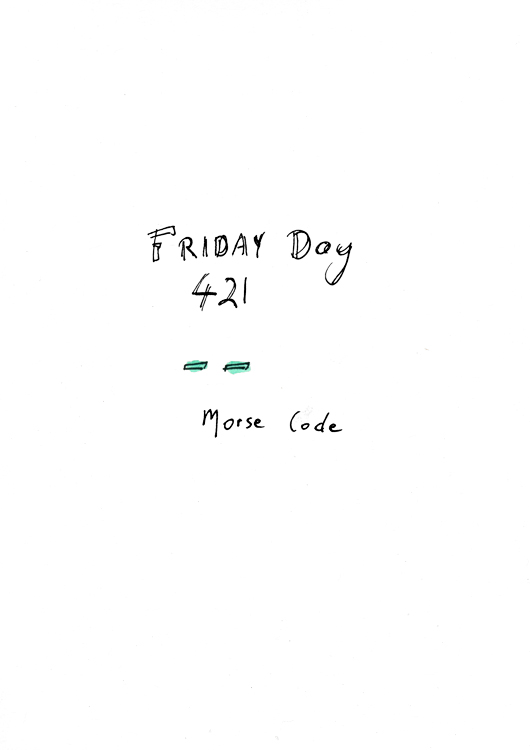 FRIDAY Day
421
– –
Morse Code